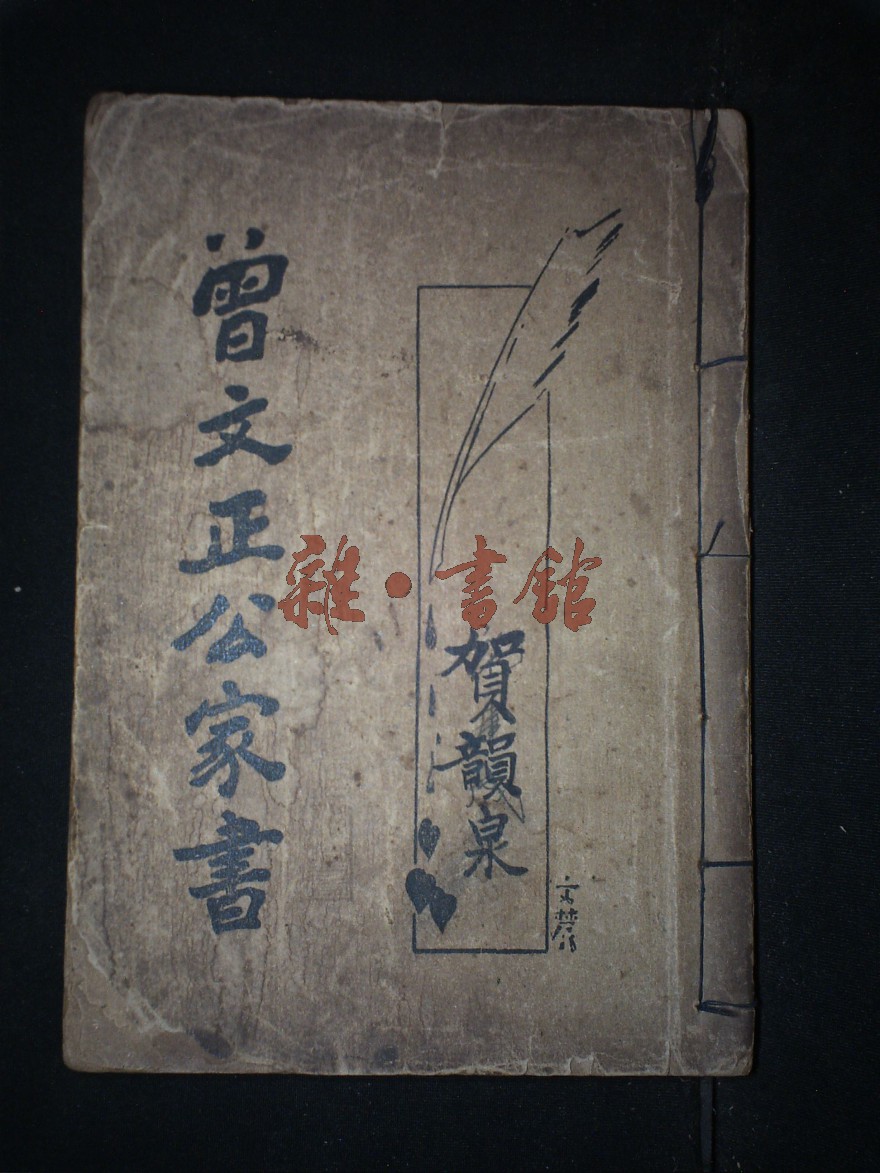 曾文正公家書
賀韻泉
雜·書館